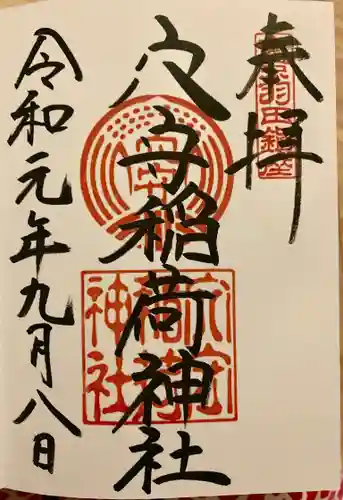 奉拝
羽田鎮座
穴守稲荷神社
穴守
稲荷
神社
令和元年九月八日